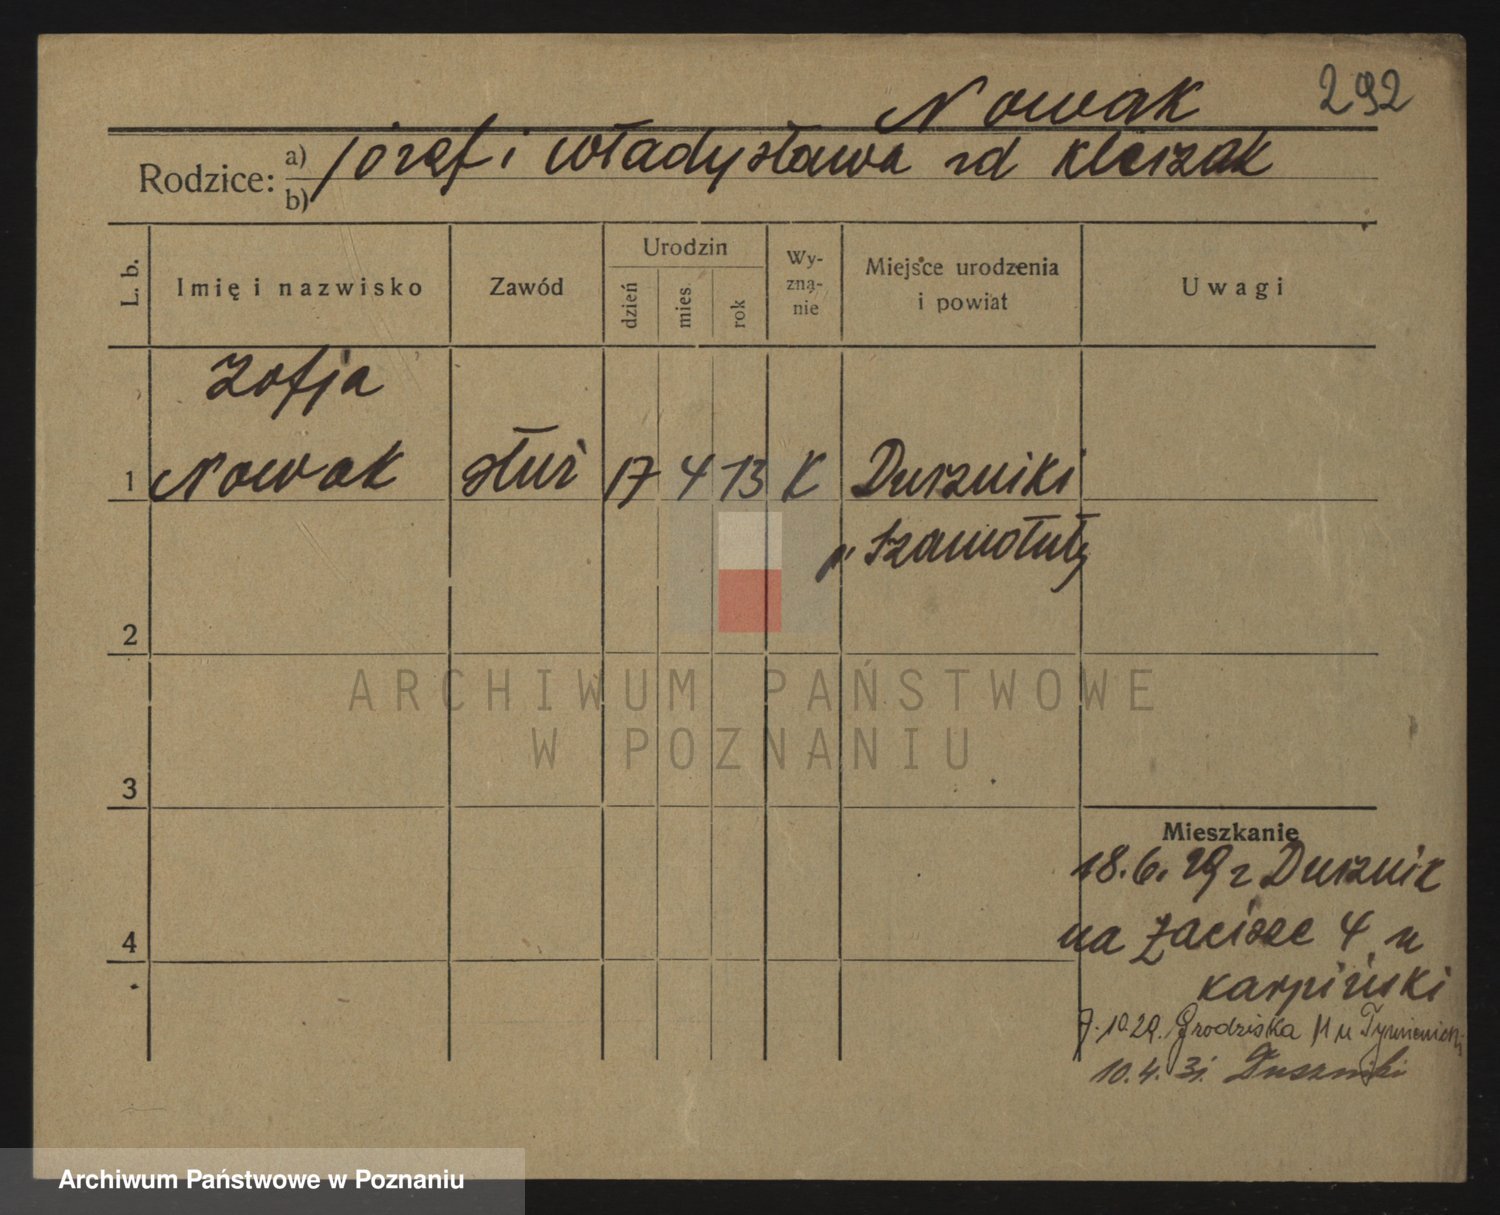 292
Nowak
Rodzice: a) józef i władysława zd kleszak
b)
L. b.
Imię i nazwisko
Zawód
Urodzin
dzień
mies
rok
Wy-
zna-
nie
Miejsce urodzenia
i powiat
Uwagi
Zofja
1 Nowak służ 17 4 13 K Duszniki
p" Szamotuły
2
ARCHIWUM PAŃSTWOWE
W POZNANIU
3
Mieszkanie
18.6.29 z Dusznik
4 na Zacisze 4 u
karpiński
7.10.29. Grodziska 11 u
10.4.31. Duszniki
Archiwum Państwowe w Poznaniu